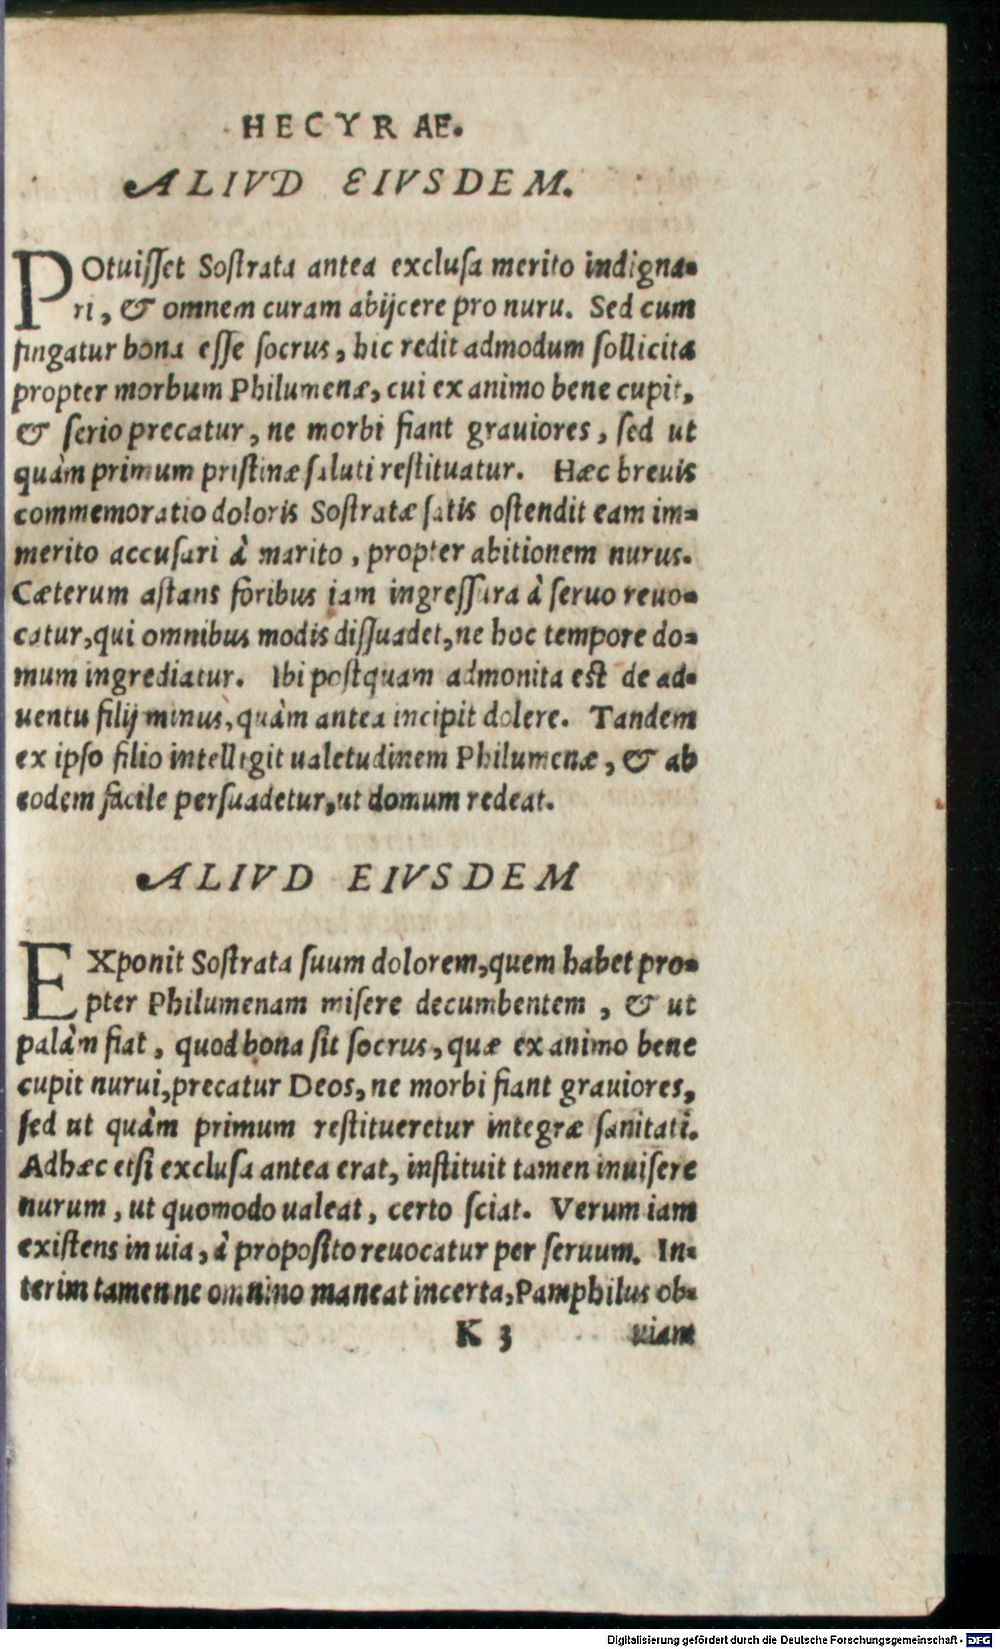 HECYRAE.
ALIVD EIVSDEM.
POtuisset Sostrata antea exclusa merito indigna-
ri, & omnem curam abijcere pro nuru. Sed cum
fingatur bona esse socrus, hic redit admodum sollicita
propter morbum Philumenæ, cui ex animo bene cupit,
& serio precatur, ne morbi fiant grauiores, sed ut
quàm primum pristinæ saluti restituatur. Hæc breuis
commemoratio doloris Sostratæ satis ostendit eam im-
merito accusari à marito, propter abitionem nurus.
Cæterum astans foribus iam ingressura à seruo reuo-
catur, qui omnibus modis dissuadet, ne hoc tempore do-
mum ingrediatur. Ibi postquam admonita est de ad-
uentu filij minus, quàm antea incipit dolere. Tandem
ex ipso filio intelligit ualetudinem Philumenæ, & ab
eodem facile persuadetur, ut domum redeat.
ALIVD EIVSDEM
EXponit Sostrata suum dolorem, quem habet pro-
pter Philumenam misere decumbentem, & ut
palàm fiat, quod bona sit socrus, quæ ex animo bene
cupit nurui, precatur Deos, ne morbi fiant grauiores,
sed ut quàm primum restitueretur integræ sanitati.
Adhæc etsi exclusa antea erat, instituit tamen inuisere
nurum, ut quomodo ualeat, certo sciat. Verum iam
existens in uia, à proposito reuocatur per seruum. In-
terim tamen ne omnino maneat incerta, Pamphilus ob-
K 3 uiam
Digitalisierung gefördert durch die Deutsche Forschungsgemeinschaft - DFG